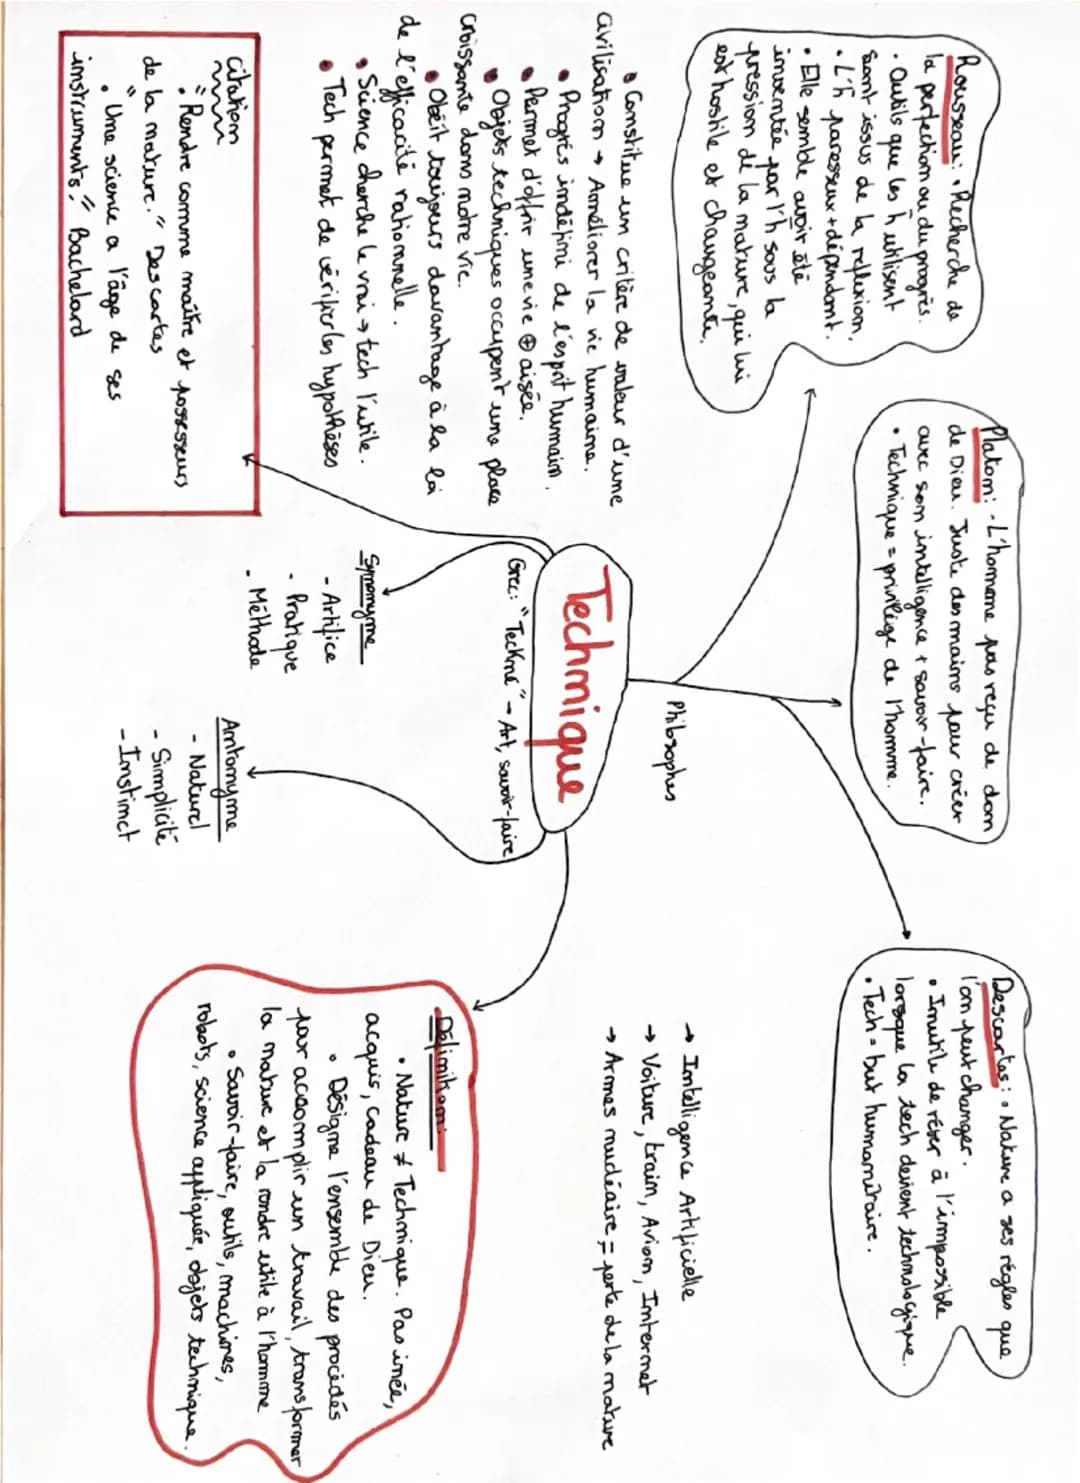 Rousseau: • Recherche de
la perfection ou du progrès.
• Outils que les h utilisent
sont issus de la reflexion.
• L'h paresseux + dépendant.
• Elle semble avoir été
inventée par l'h sous la
pression de la nature, qui lui
est hostile et changeante.
Platon: - L'homme pas reçu de don
de Dieu. Juste des mains pour créer
avec son intelligence + savoir-faire.
• Technique = privilège de l'homme.
Descartes: • Nature a ses règles que
l'on peut changer.
• Inutile de rêver à l'impossible
lorsque la tech devient technologique.
• Tech = but humanitaire.
Philosophes
• Constitue un critère de valeur d'une
civilisation → Améliorer la vie humaine.
• Progrès indéfini de l'esprit humain.
• Permet d'offrir une vie ⊕ aisée.
• Objets techniques occupent une place
croissante dans notre vie.
• Obéit toujours davantage à la loi
de l'efficacité rationnelle.
• Science cherche le vrai → tech l'utile.
• Tech permet de vérifier les hypothèses
Technique
Grec: "Tekné" → Art, savoir-faire
→ Intelligence Artificielle
→ Voiture, train, Avion, Internet
→ Armes nucléaire, = perte de la nature
citation
• "Rendre comme maître et possesseurs
de la nature." Descartes
• "Une science a l'âge de ses
instruments." Bachelard
Synonyme
- Artifice
- Pratique
- Méthode
Antonyme
- Naturel
- Simplicité
- Instinct
Définition:
• Nature ≠ Technique. Pas innée,
acquis, cadeau de Dieu.
• Désigne l'ensemble des procédés
pour accomplir un travail, transformer
la nature et la rendre utile à l'homme
• Savoir-faire, outils, machines,
robots, science appliquée, objets technique.